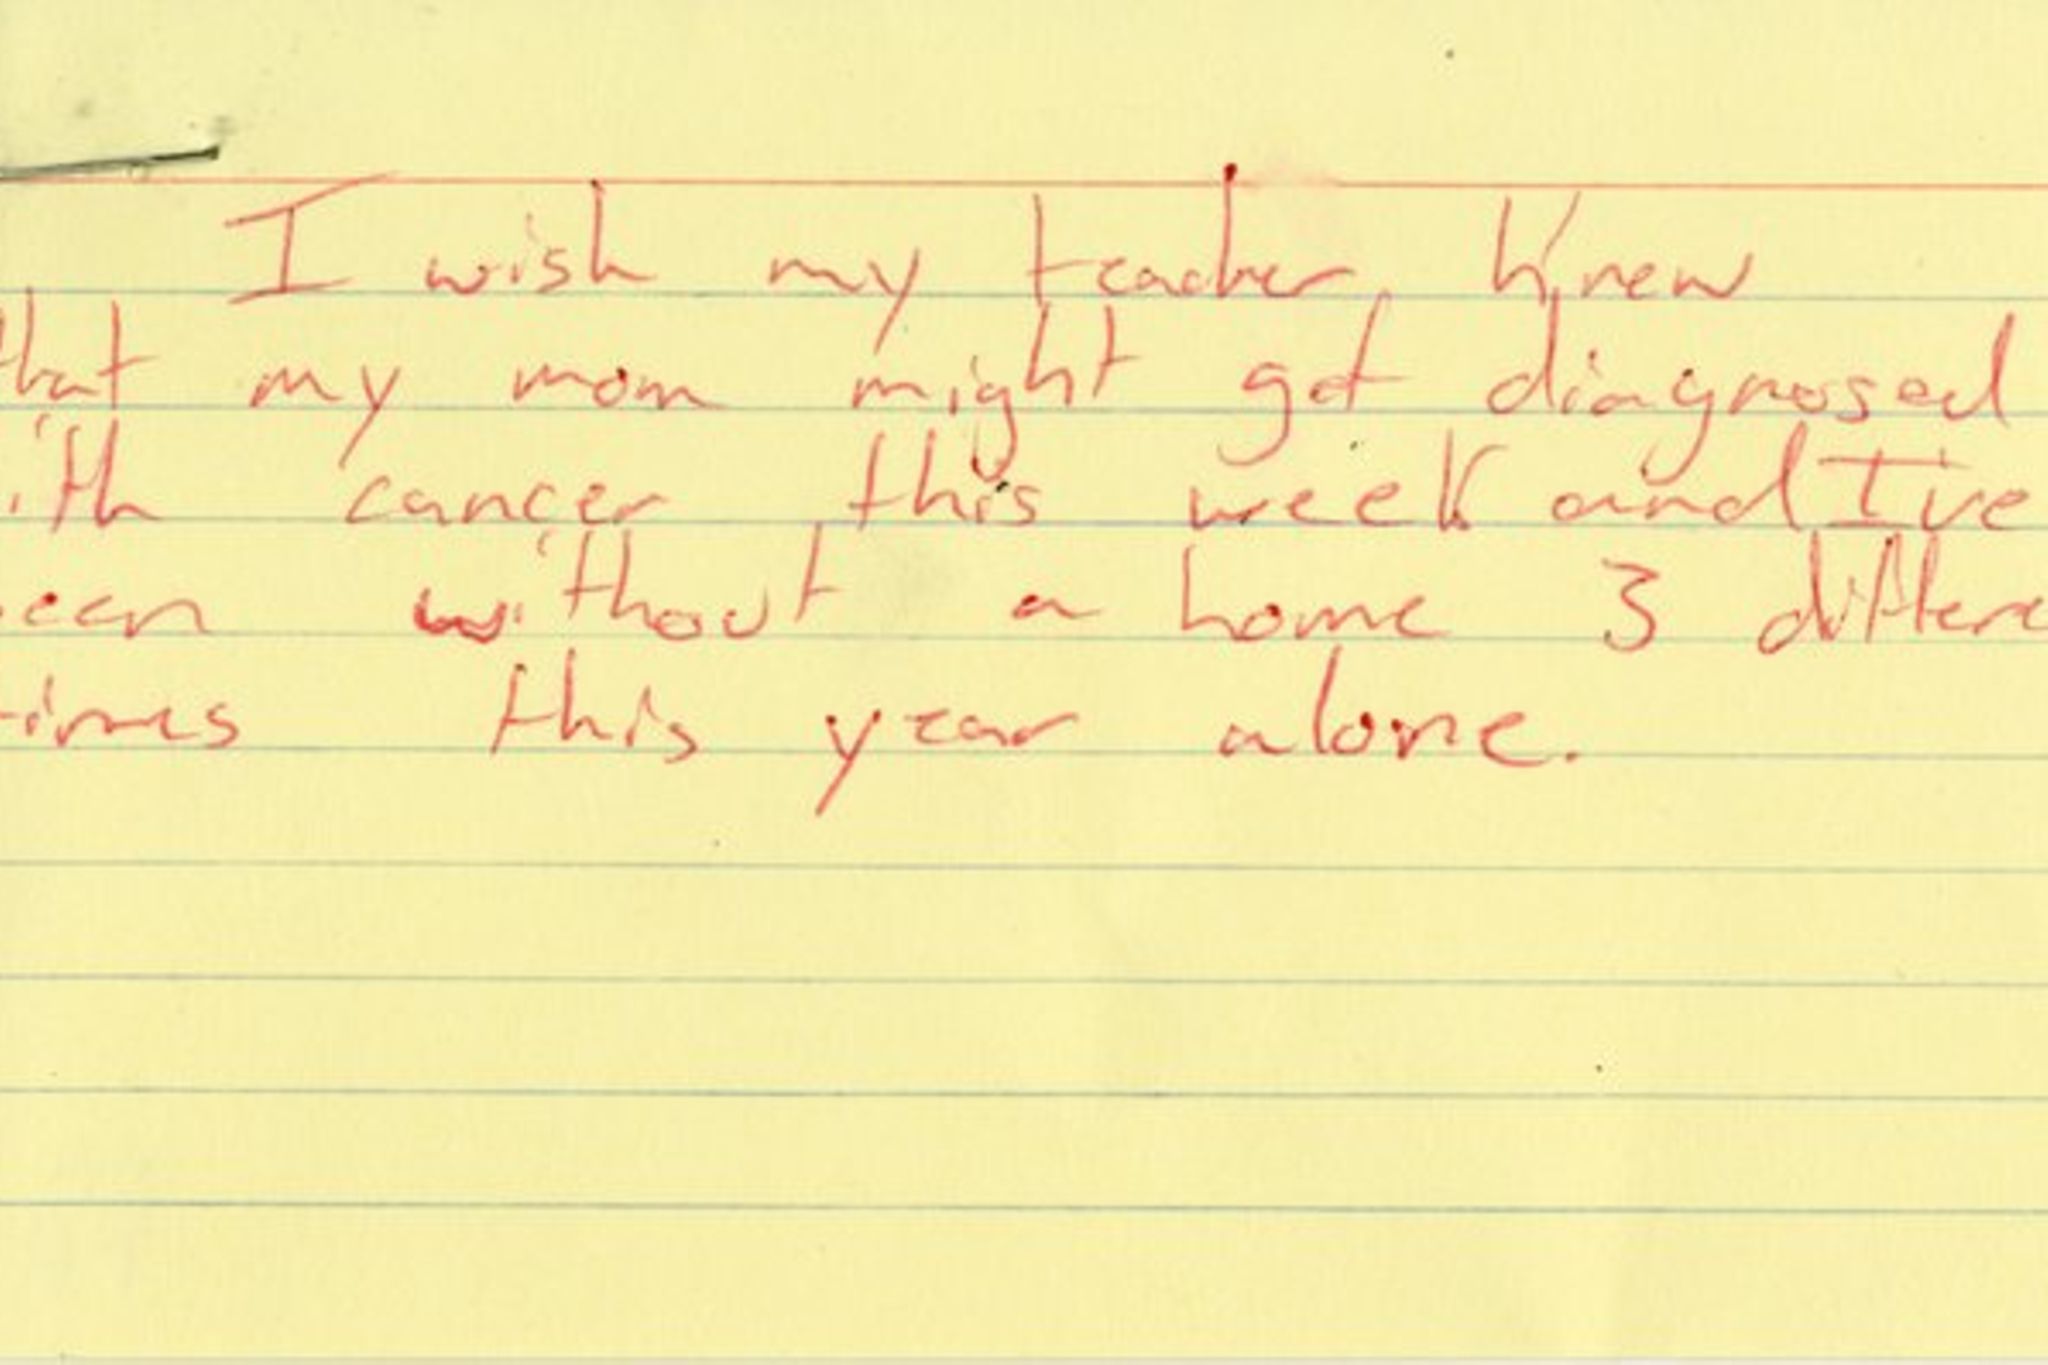 I wish my teacher knew
that my mom might get diagnosed
ith cancer this week and I've
een without a home 3 differe
times this year alone.